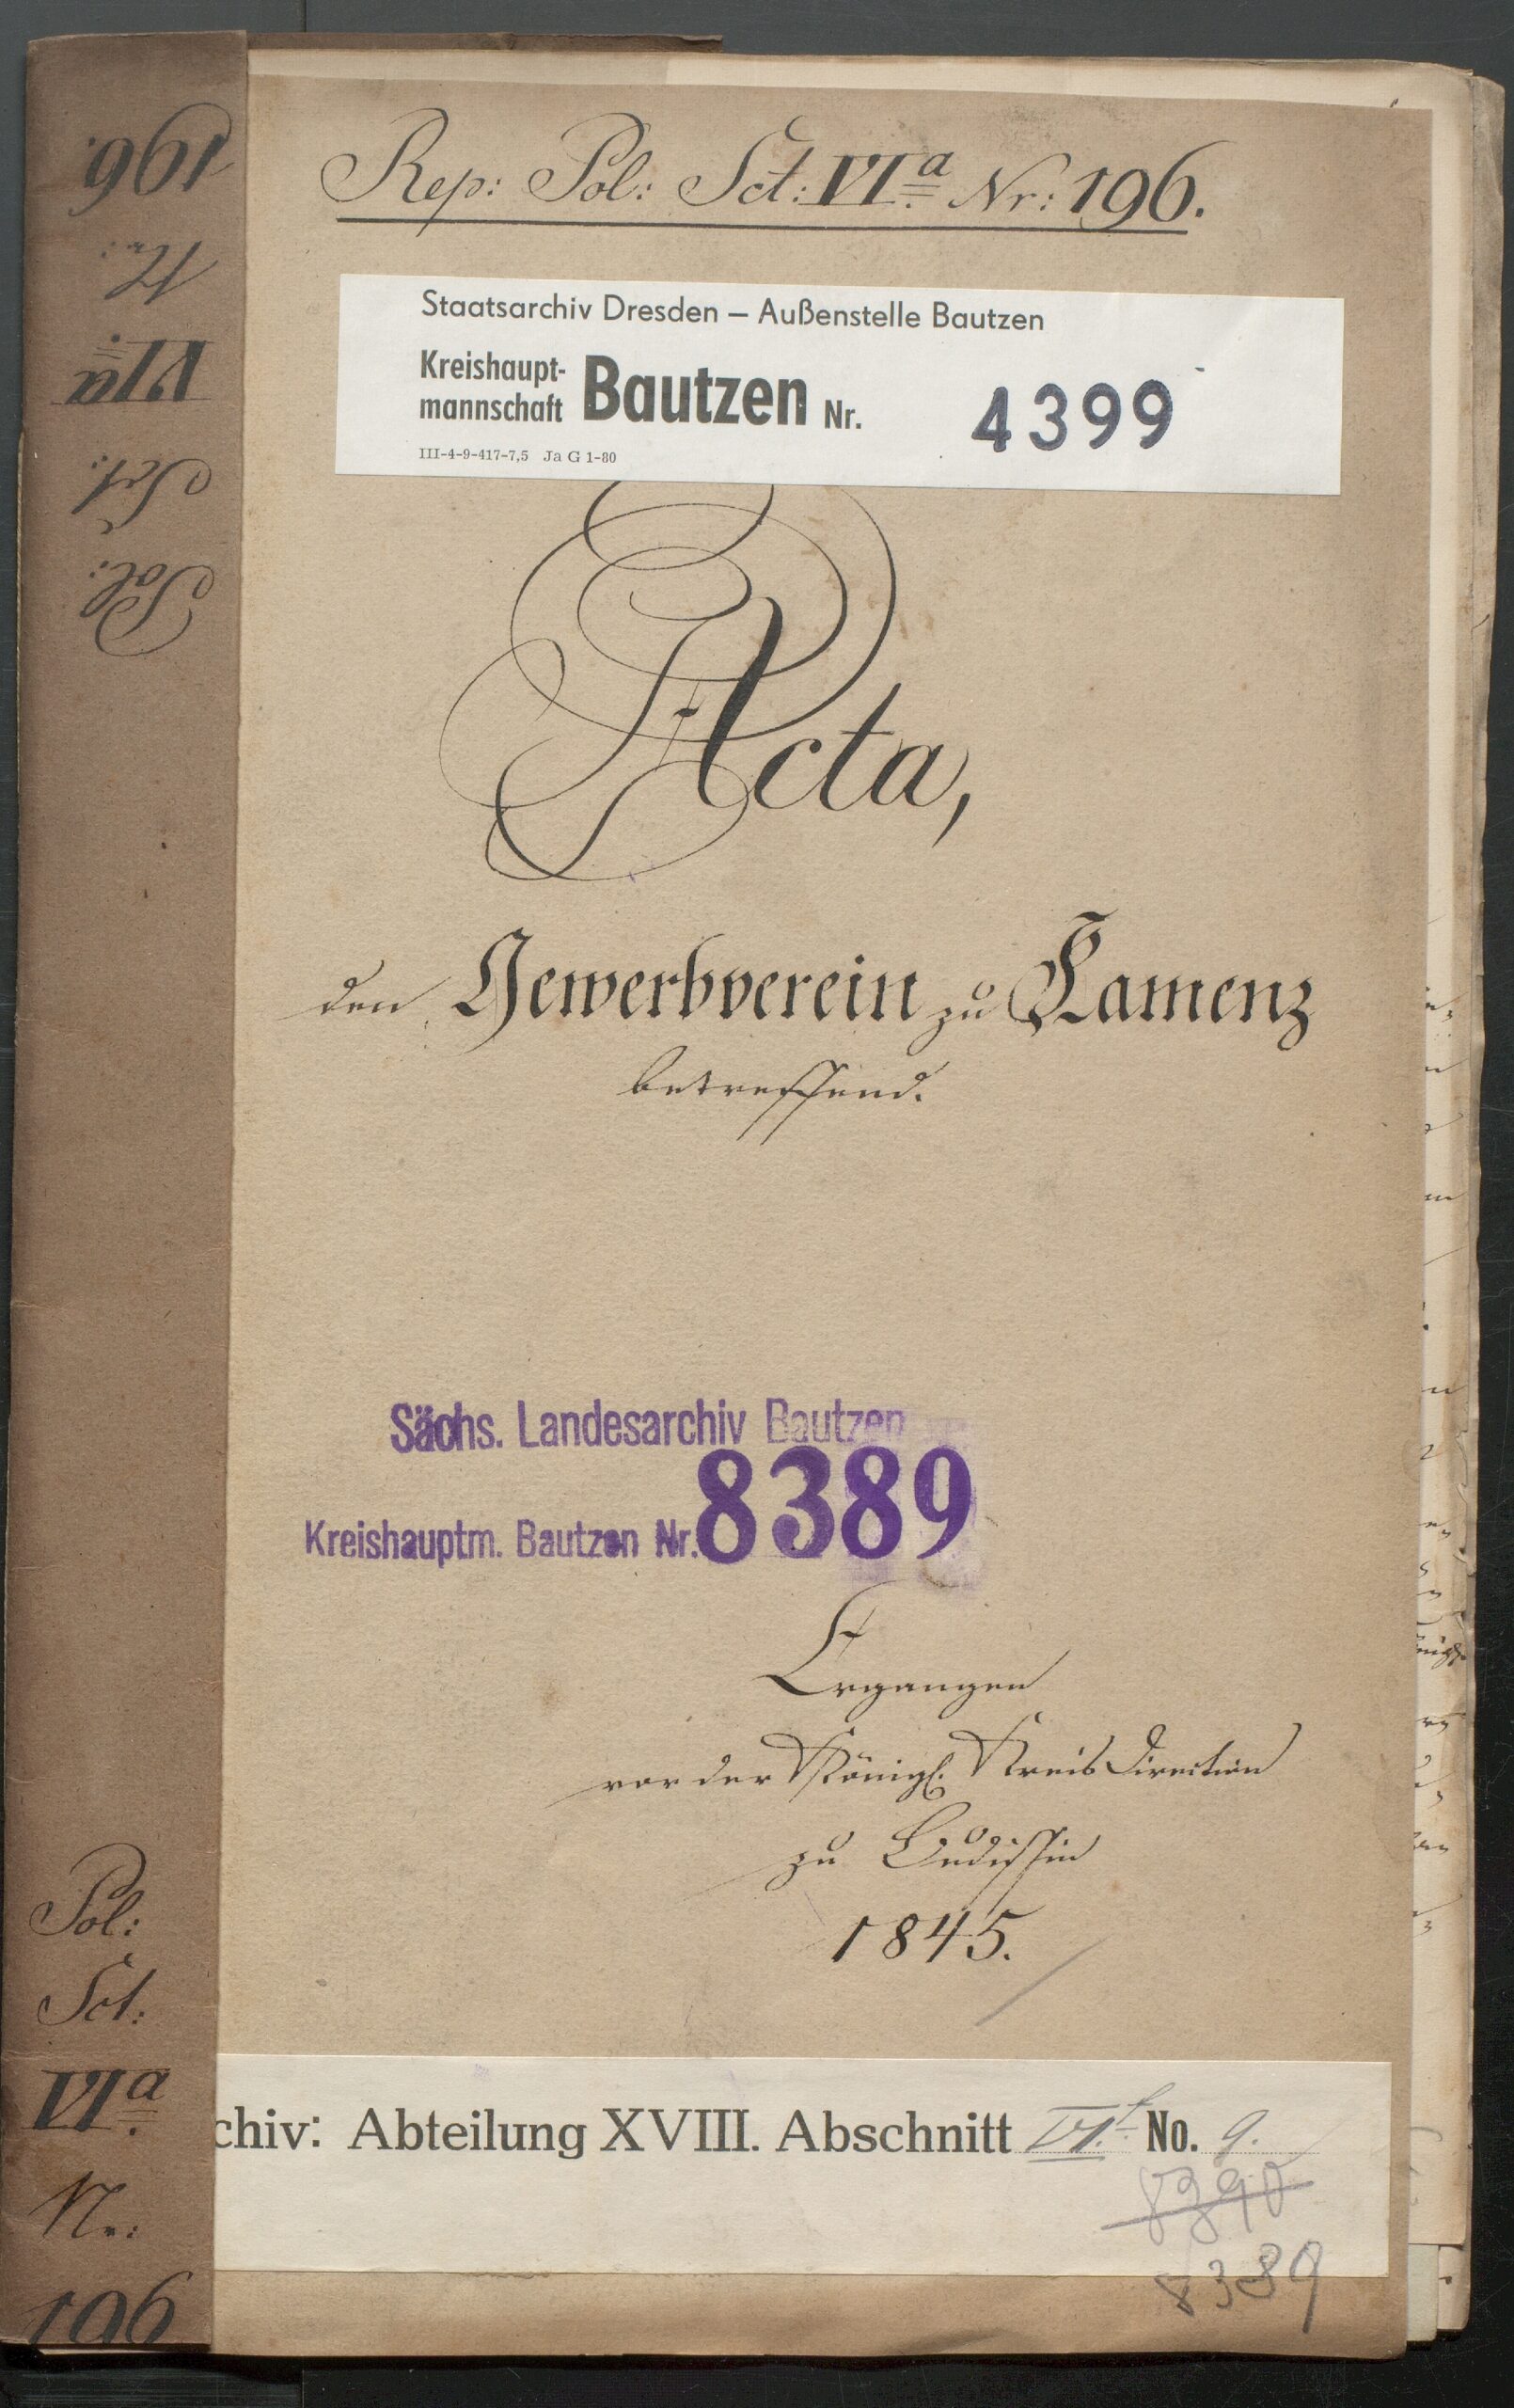 Rep: Pol: Sct: VI.a Nr: 196.
Staatsarchiv Dresden – Außenstelle Bautzen
Kreishaupt-
mannschaft Bautzen Nr. 4399
III-4-9-417-7,5 Ja G 1-80
Acta,
den Gewerbverein zu Kamenz
betreffend.
Sächs. Landesarchiv Bautzen
Kreishauptm. Bautzen Nr. 8389
Ergangen
vor der Königl. Kreis Direction
zu Budissin
1845.
chiv: Abteilung XVIII. Abschnitt VI.f No. 9.
8390
8389
Pol:
Sct:
VIa.
Nr:
196
Pol:
Sct:
VIa.
Nr:
196.